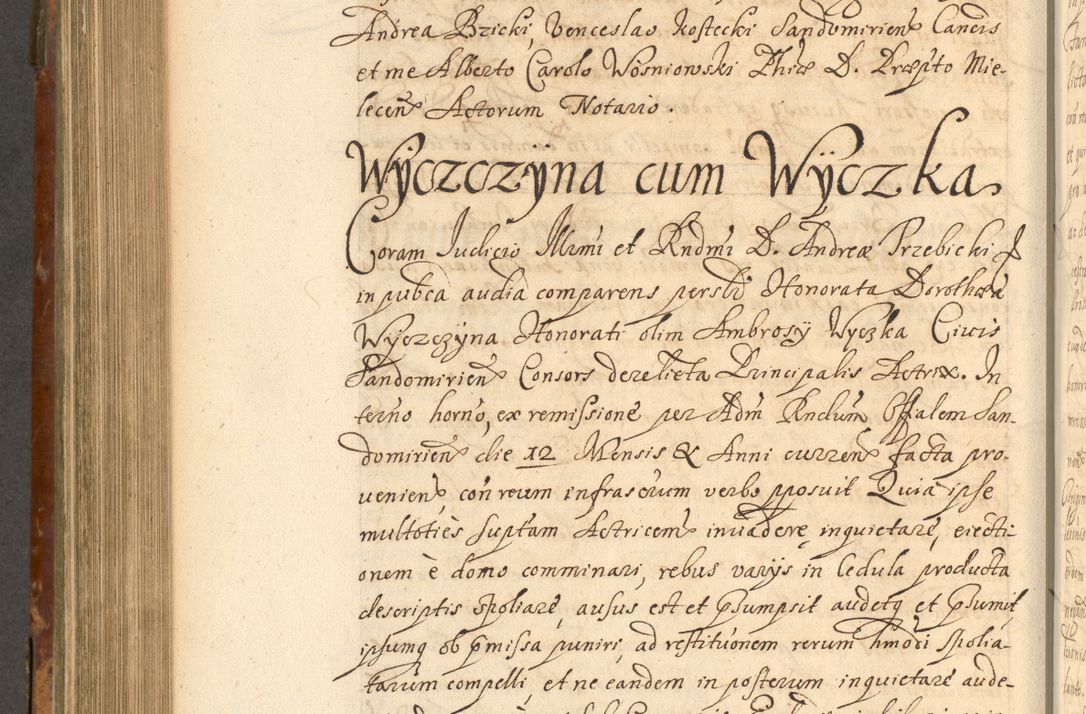 Andrea Bzicki, Venceslao Kostecki Sandomirien Cancis
et me Alberto Carolo Wosniowski Phiæ D. Præpto Mie-
lecen Actorum Notario.
Wÿczczÿna cum Wÿczka
Coram Judicio Illrmi et Rndmi D. Andreæ Trzebicki
in pubca audia comparens persltr Honorata Dorothea
Wÿczczÿna Honorati olim Ambrosÿ Wyczka Civis
Sandomirien Consors derelicta Principalis Actrix. In
termo horno, ex remissione per Adm Rndum Offialem San-
domirien die 12 Mensis & Anni curren facta pro-
venien, con reum infrascrum verbo pposuit Quia ipse
multoties suptam Actricem invadere, inquietare, eiecti-
onem è domo comminari, rebus varÿs in Cedula producta
descriptis spoliare, ausus est et psumpsit audetq et psumit
ipsumq ob pmissa puniri, ad restituonem rerum hmodi spolia-
tarum compelli, et ne eandem in posterum inquietare aude-